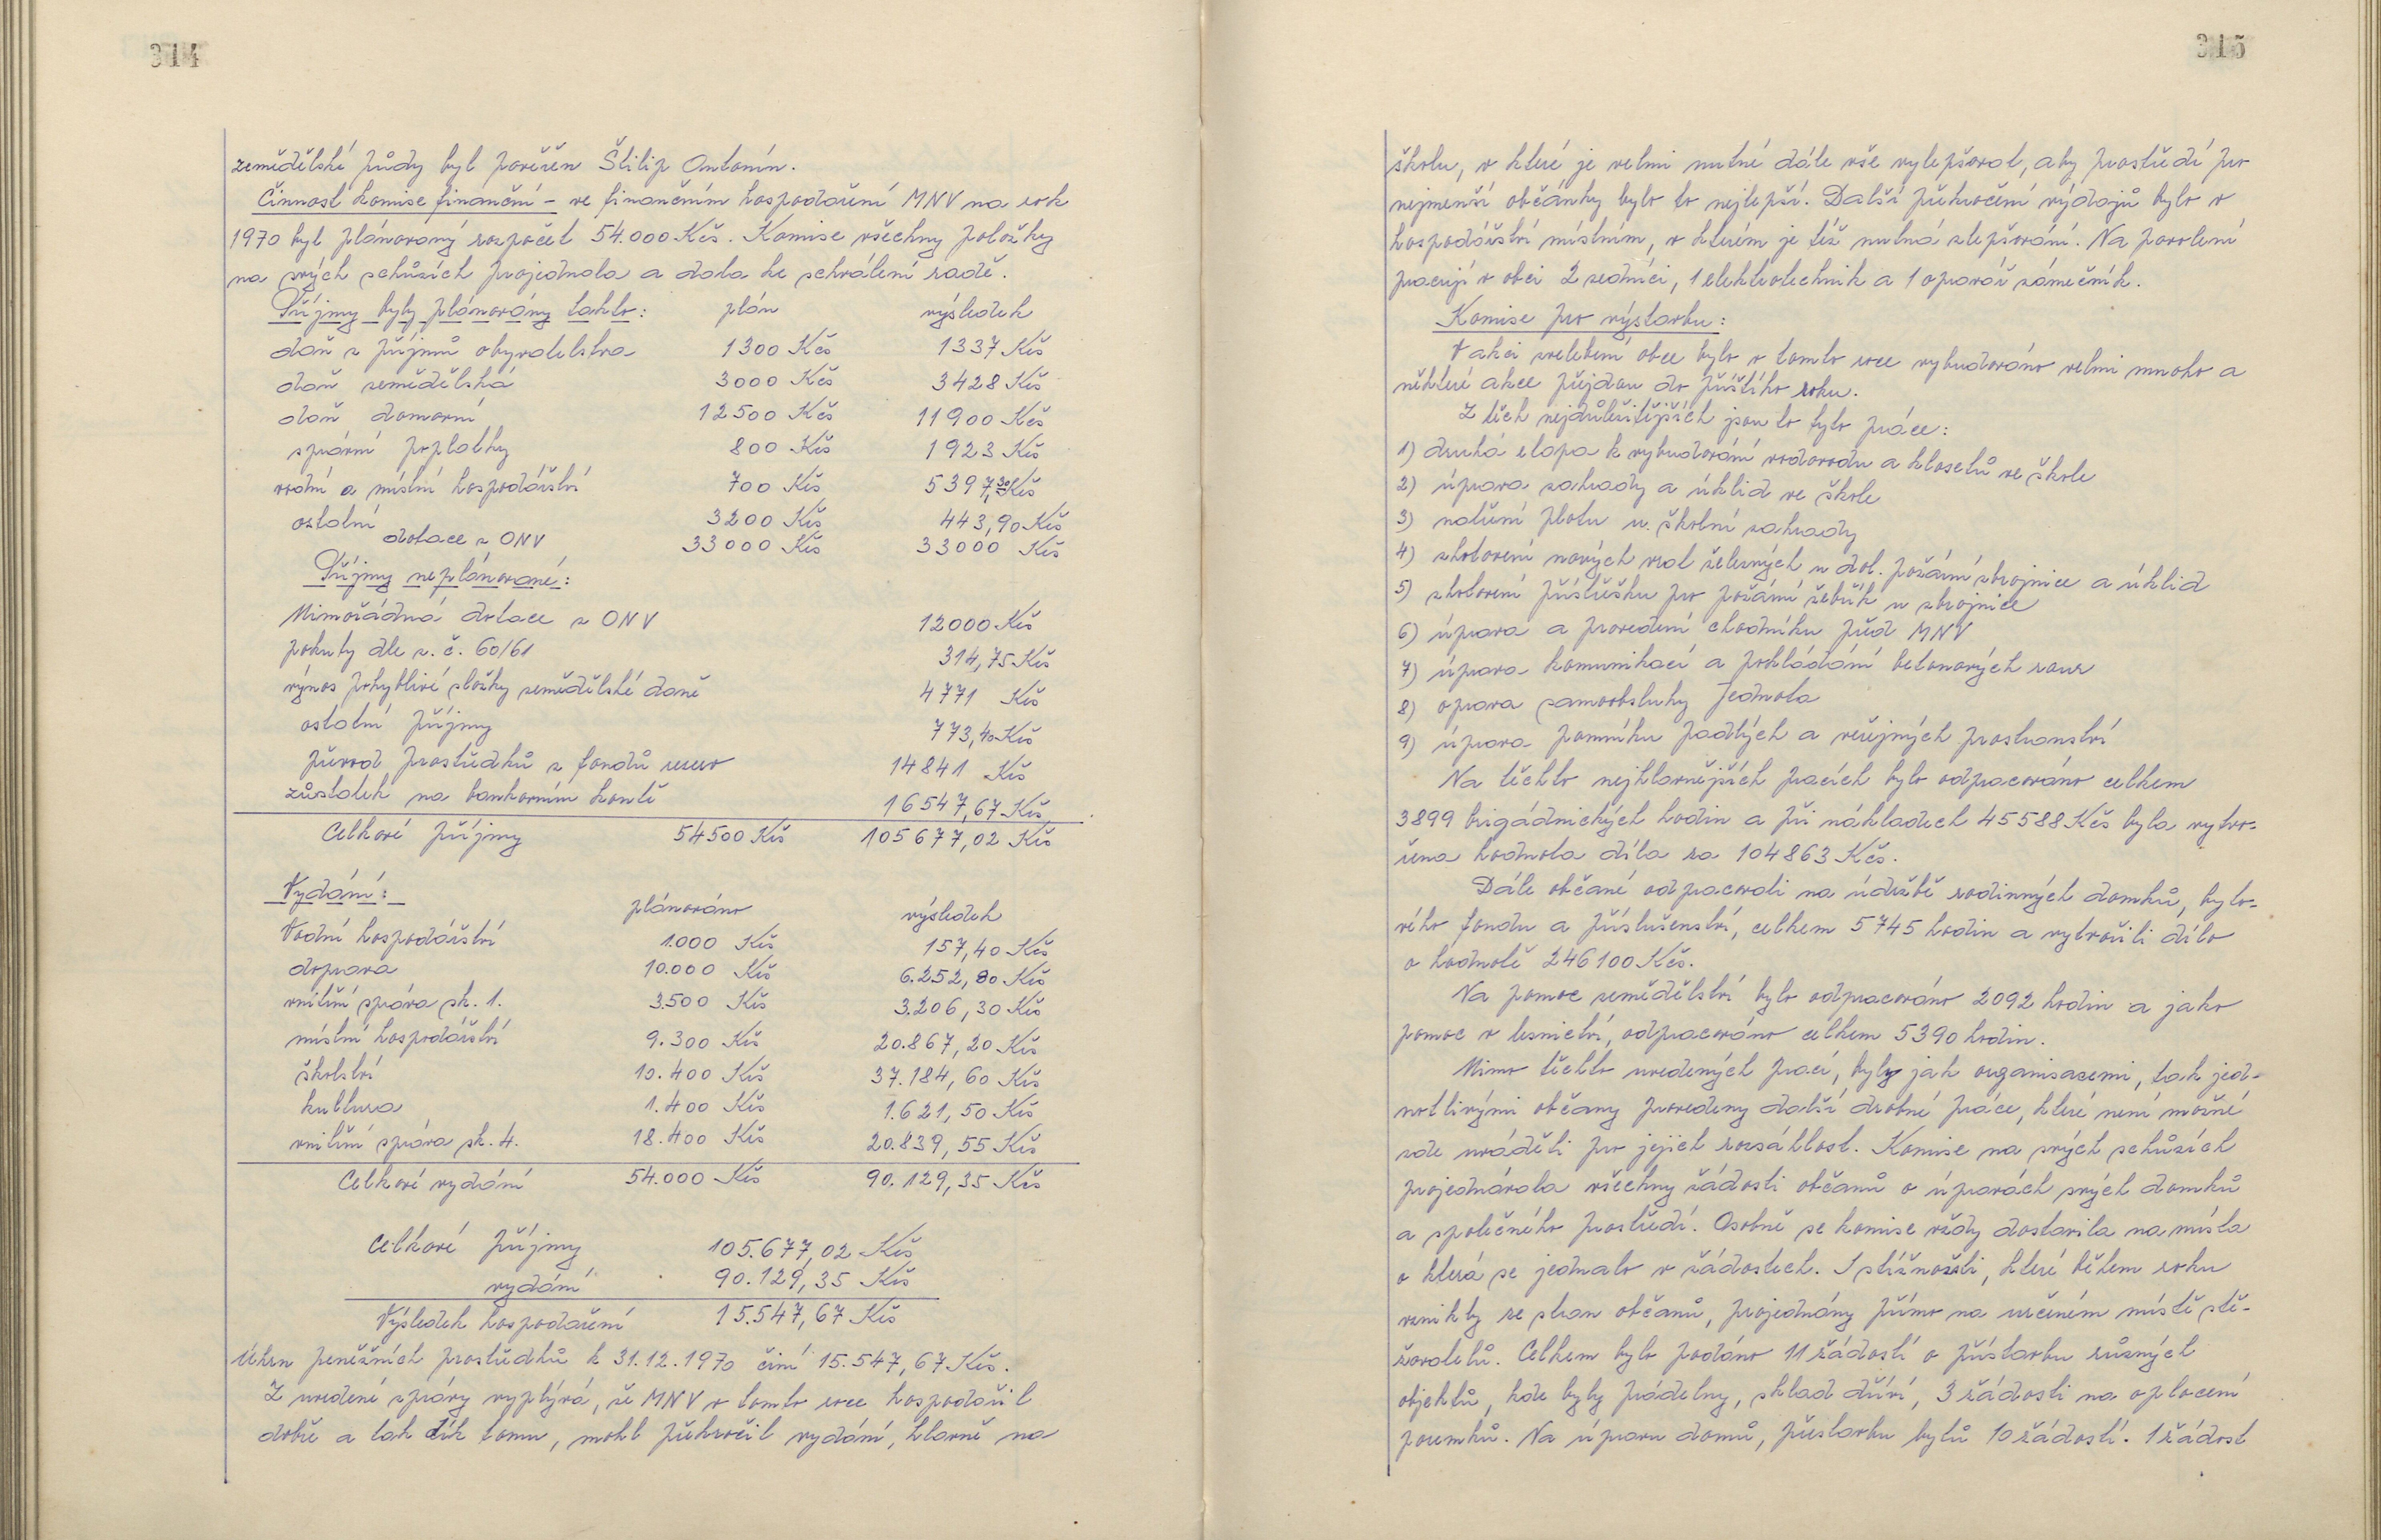 314
zemědělské půdy byl pověřen Štilip Antonín.
Činnost komise finanční – ve finančním hospodaření MNV na rok
1970 byl plánovaný rozpočet 54.000 Kčs. Komise všechny položky
na svých schůzích projednala a dala ke schválení radě.
Příjmy byly plánovány takto: plán výsledek
daň z příjmů obyvatelstva 1300 Kčs 1337 Kčs
daň zemědělská 3000 Kčs 3428 Kčs
daň domovní 12500 Kčs 11900 Kčs
správní poplatky 800 Kčs 1923 Kčs
vodní a místní hospodářství 700 Kčs 5397,30 Kčs
ostatní 3200 Kčs 443,90 Kčs
dotace z ONV 33000 Kčs 33000 Kčs
Příjmy neplánované:
Mimořádná dotace z ONV 12000 Kčs
pokuty dle z. č. 60/61 314,75 Kčs
výnos pohyblivé složky zemědělské daně 4771 Kčs
ostatní příjmy 773,40 Kčs
převod prostředků z fondů rezerv 14841 Kčs
zůstatek na bankovním kontě 16547,67 Kčs
Celkové příjmy 54500 Kčs 105677,02 Kčs
Vydání: plánováno výsledek
Vodní hospodářství 1.000 Kčs 157,40 Kčs
doprava 10.000 Kčs 6.252,80 Kčs
vnitřní správa sk. 1. 3.500 Kčs 3.206,30 Kčs
místní hospodářství 9.300 Kčs 20.867,20 Kčs
školství 10.400 Kčs 37.184,60 Kčs
kultura 1.400 Kčs 1.621,50 Kčs
vnitřní správa sk. 4. 18.400 Kčs 20.839,55 Kčs
Celkové vydání 54.000 Kčs 90.129,35 Kčs
Celkové příjmy 105.677,02 Kčs
vydání 90.129,35 Kčs
Výsledek hospodaření 15.547,67 Kčs
Úhrn peněžních prostředků k 31.12.1970 činí 15.547,67 Kčs.
Z uvedené zprávy vyplývá, že MNV v tomto roce hospodařil
dobře a tak dík tomu, mohl překročit vydání, hlavně na
315
školu, v které je velmi nutné dále vše vylepšovat, aby prostředí pro
nejmenší občánky bylo to nejlepší. Další překročení výdajů bylo v
hospodářství místním, v kterém je též nutná zlepšování. Na povolení
pracují v obci 2 zedníci, 1 elektrotechnik a 1 opravář zámečník.
Komise pro výstavbu:
V akci zvelebení obce bylo v tomto roce vybudováno velmi mnoho a
některé akce přejdou do příštího roku.
Z těch nejdůležitějších jsou to tyto práce:
1) druhá etapa k vybudování vodovodu a klosetů ve škole
2) úprava zahrady a úklid ve škole
3) natření plotu u školní zahrady
4) zhotovení nových vrat železných u dol. požární zbrojnice a úklid
5) zhotovení přístřešku pro požární žebřík u zbrojnice
6) úprava a provedení chodníku před MNV
7) úprava komunikací a pokládání betonových rour
8) oprava samoobsluhy Jednota
9) úprava pomníku padlých a veřejných prostranství
Na těchto nejhlavnějších pracích bylo odpracováno celkem
3899 brigádnických hodin a při nákladech 45588 Kčs byla vytvo=
řena hodnota díla za 104863 Kčs.
Dále občané odpracovali na údržbě rodinných domků, byto=
vého fondu a příslušenství, celkem 5745 hodin a vytvořili dílo
o hodnotě 246100 Kčs.
Na pomoc zemědělství bylo odpracováno 2092 hodin a jako
pomoc v lesnictví, odpracováno celkem 5390 hodin.
Mimo těchto uvedených prací, byly jak organisacemi, tak jed-
notlivými občany provedeny další drobné práce, které není možné
zde uváděti pro jejich rozsáhlost. Komise na svých schůzích
projednávala všechny žádosti občanů o úpravách svých domků
a společného prostředí. Osobně se komise vždy dostavila na místa
o která se jednalo v žádostech. I stížnosti, které během roku
vznikly ze stran občanů, projednány přímo na určeném místě stě-
žovatelů. Celkem bylo podáno 11 žádostí o přístavbu různých
objektů, kde byly prádelny, sklad dříví, 3 žádosti na oplocení
pozemků. Na úpravu domů, přestavbu bytů 10 žádostí. 1 žádost